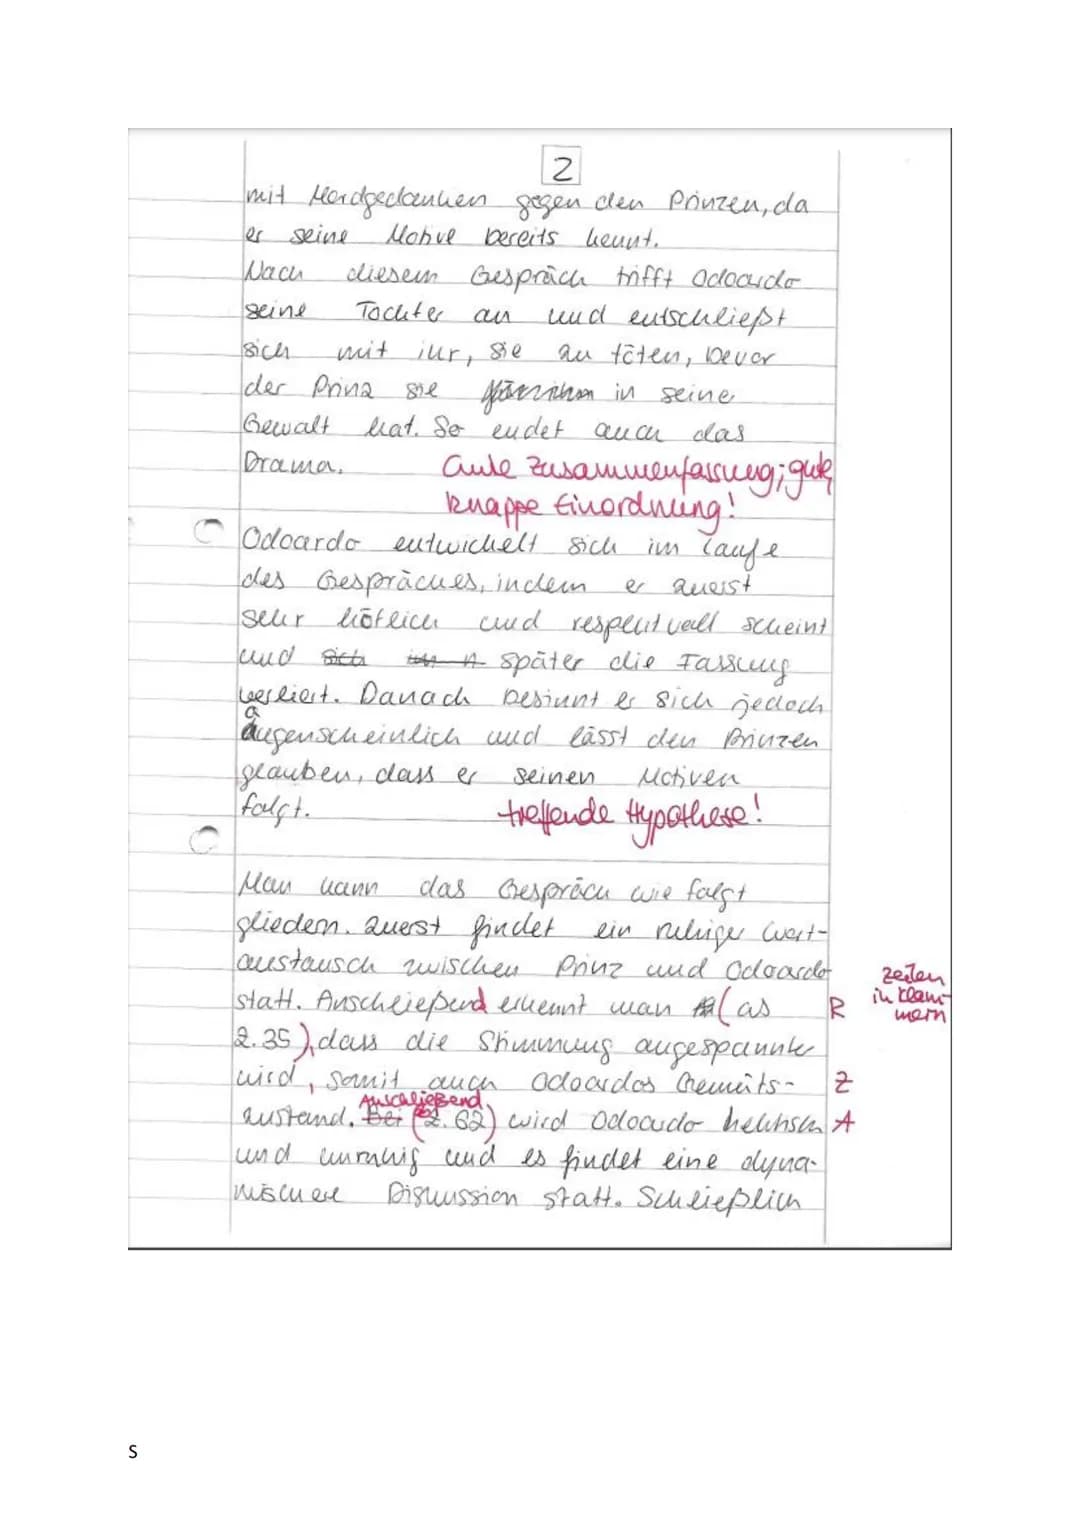 2
mit Mordgedanken gegen den Prinzen, da
er seine Motive bereits kennt.
Nach diesem Gespräch trifft Odoardo
seine Tochter an und entschließt
sich mit ihr, sie zu töten, bevor
der Prinz sie in seine
Gewalt hat. So endet auch das
Drama.
Gute Zusammenfassung; gute,
knappe Einordnung!
Odoardo entwickelt sich im Laufe
des Gespräches, indem er zuerst
sehr höflich und respektvoll scheint
und sich später die Fassung
verliert. Danach besinnt er sich jedoch
augenscheinlich und lässt den Prinzen
glauben, dass er seinen Motiven
folgt.
treffende Hypothese!
Man kann das Gespräch wie folgt
gliedern. Zuerst findet ein ruhiger Wort-
austausch zwischen Prinz und Odoardo
statt. Anschließend erkennt man (ab
Z.35), dass die Stimmung angespannte
wird, somit auch Odoardos Gemüts-
zustand. Bei Anschließend (Z.62) wird Odoardo hektisch
und unruhig und es findet eine dyna-
mischere Diskussion statt. Schließlich
Zeilen
in Klam-
mern
R
Z
A
S